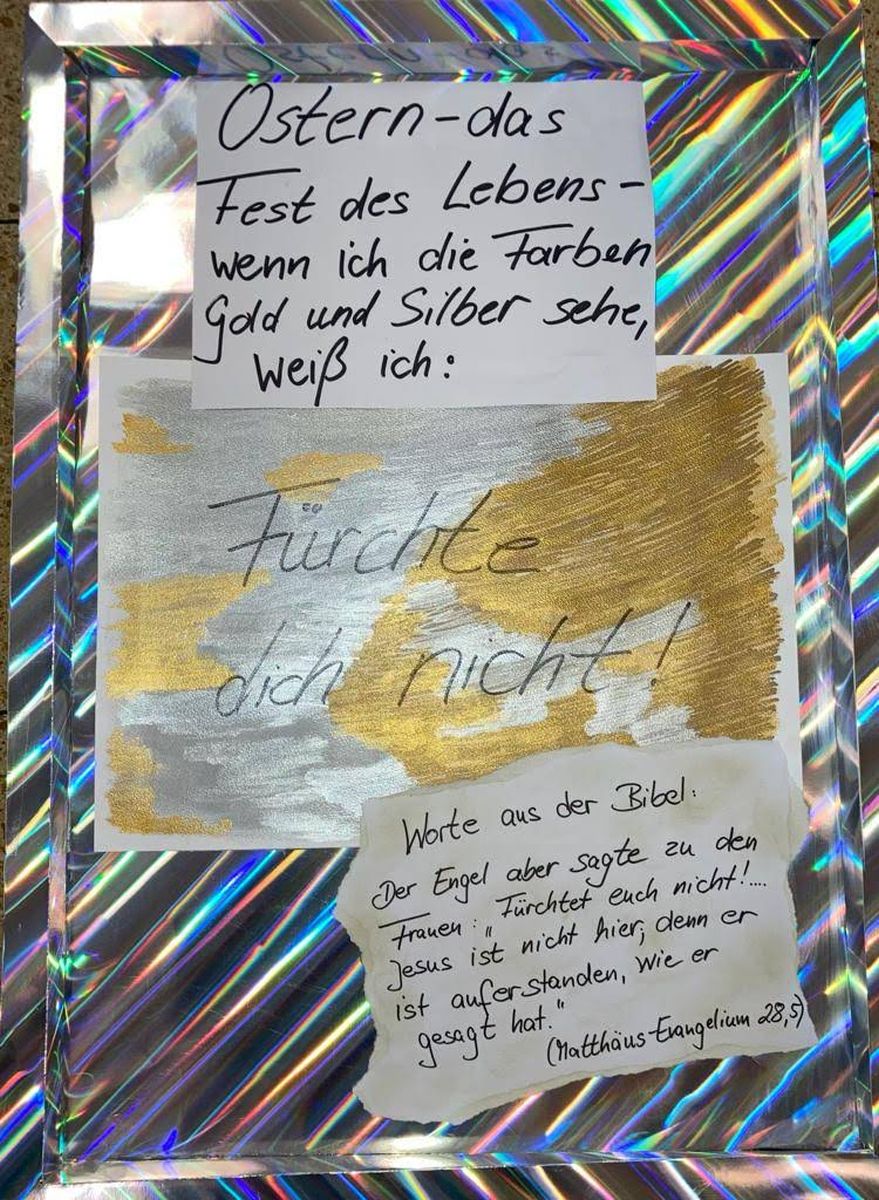 Ostern - das
Fest des Lebens -
wenn ich die Farben
Gold und Silber sehe,
weiß ich:
Fürchte
dich nicht!
Worte aus der Bibel:
Der Engel aber sagte zu den
Frauen: „Fürchtet euch nicht!....
Jesus ist nicht hier; denn er
ist auferstanden, wie er
gesagt hat."
(Matthäus-Evangelium 28,5)